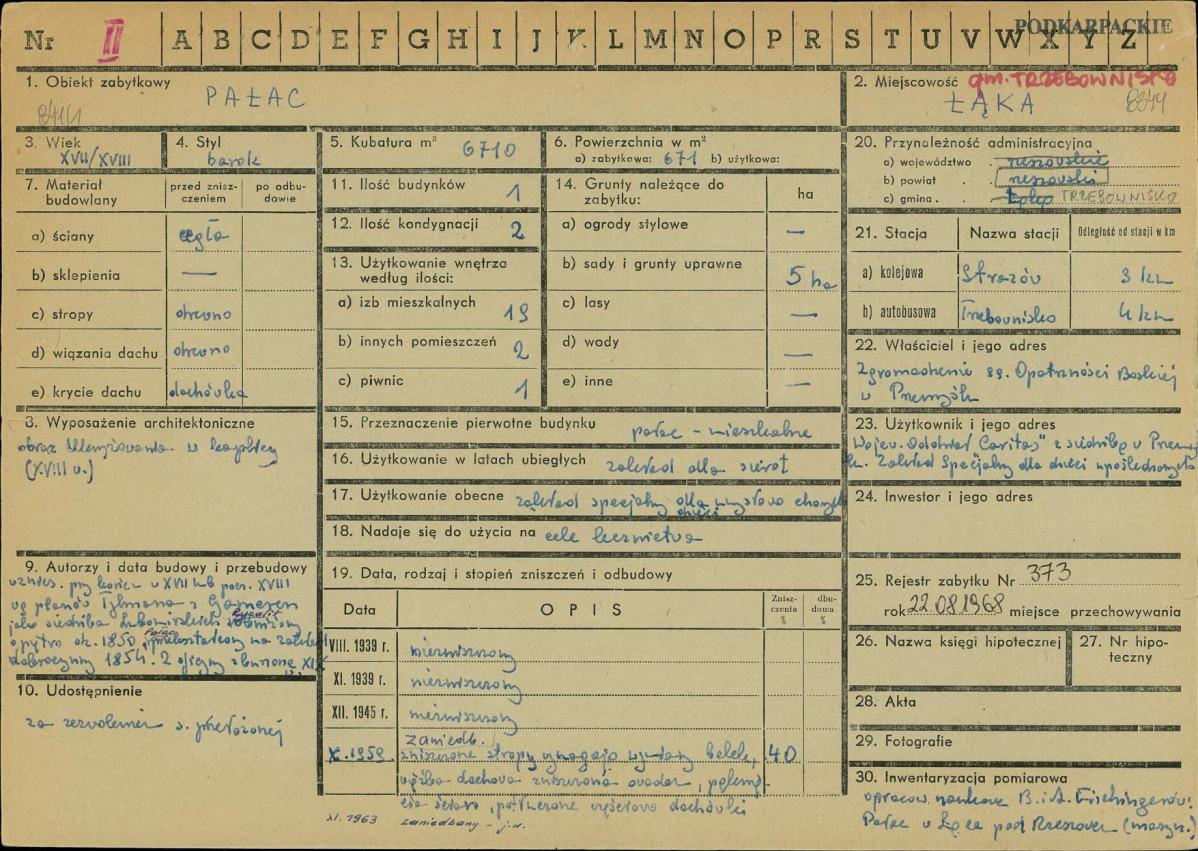 PODKARPACKIE
Nr II A B C D E F G H I J K L M N O P R S T U V W X Y Z
1. Obiekt zabytkowy
PAŁAC
2. Miejscowość gm. TRZEBOWNISKO
ŁĄKA 8344
3. Wiek
XVII/XVIII
4. Styl
barok
5. Kubatura m³ 6710
6. Powierzchnia w m²
a) zabytkowa: 671 b) użytkowa:
7. Materiał budowlany
przed zniszczeniem
po odbudowie
a) ściany cegła
b) sklepienia —
c) stropy drewno
d) wiązania dachu drewno
e) krycie dachu dachówka
8. Wyposażenie architektoniczne
obraz Ukrzyżowania w kaplicy
(XVIII w.)
9. Autorzy i data budowy i przebudowy
wznies. przy koniec w XVII lub pocz. XVIII
wg planów Tylmana z Gameren
jako siedziba Lubomirskich
o piętro ok. 1850, przekształcony na zakład
dobroczynny 1854. 2 oficyny zburzone XIX
w.
10. Udostępnienie
za zezwoleniem s. przełożonej
11. Ilość budynków 1
12. Ilość kondygnacji 2
13. Użytkowanie wnętrza
według ilości:
a) izb mieszkalnych 19
b) innych pomieszczeń 2
c) piwnic 1
14. Grunty należące do
zabytku:
ha
a) ogrody stylowe —
b) sady i grunty uprawne 5 ha
c) lasy —
d) wody —
e) inne —
15. Przeznaczenie pierwotne budynku pałac - mieszkalne
16. Użytkowanie w latach ubiegłych zakład dla sierot
17. Użytkowanie obecne zakład specjalny dla umysłowo chorych
dzieci
18. Nadaje się do użycia na cele lecznictwa
19. Data, rodzaj i stopień zniszczeń i odbudowy
Data
OPIS
Zniszczenia %
dbudowa %
VIII. 1939 r. niezniszczony
XI. 1939 r. niezniszczony
XII. 1945 r. niezniszczony
zaniedb.
X. 1959. zniszczone stropy wymagają wymiany belek, 40
więźba dachowa zniszczona owadem, pęknięcia
ścian, potłuczone częściowo dachówki
XI. 1963 zaniedbany - j.w.
20. Przynależność administracyjna
a) województwo rzeszowskie
b) powiat rzeszowski
c) gmina TRZEBOWNISKO
21. Stacja
Nazwa stacji
Odległość od stacji w km
a) kolejowa Strażów 3 km
b) autobusowa Trzebownisko 4 km
22. Właściciel i jego adres
Zgromadzenie ss. Opatrzności Boskiej
w Przemyślu
23. Użytkownik i jego adres
Wojew. Oddział "Caritas" z siedzibą w Przemyślu.
Zakład Specjalny dla dzieci upośledzonych
24. Inwestor i jego adres
25. Rejestr zabytku Nr 373
rok 22.08.1968 miejsce przechowywania
26. Nazwa księgi hipotecznej
27. Nr hipoteczny
28. Akta
29. Fotografie
30. Inwentaryzacja pomiarowa
opracow. naukowe B. i A. Fischingerów:
Pałac w Łące pod Rzeszowem (maszyn.)